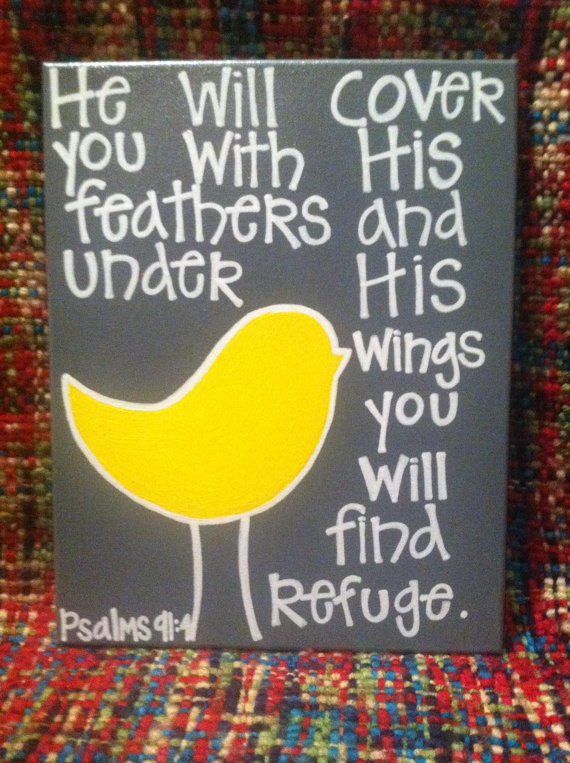 He Will Cover
you With His
feathers and
under His
Wings
you
Will
find
Refuge.
Psalms 91:4